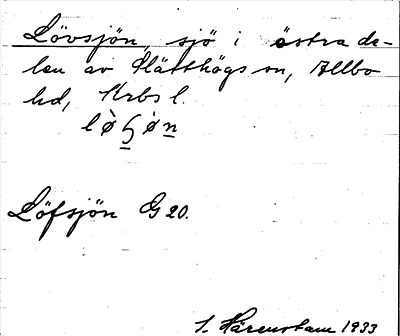 Lövsjön, sjö i östra de-
len av Slätthögs sn, Allbo
hd, Krbs l.
lø̀ɧø̀n
Löfsjön G 20.
S. Härenstam 1933